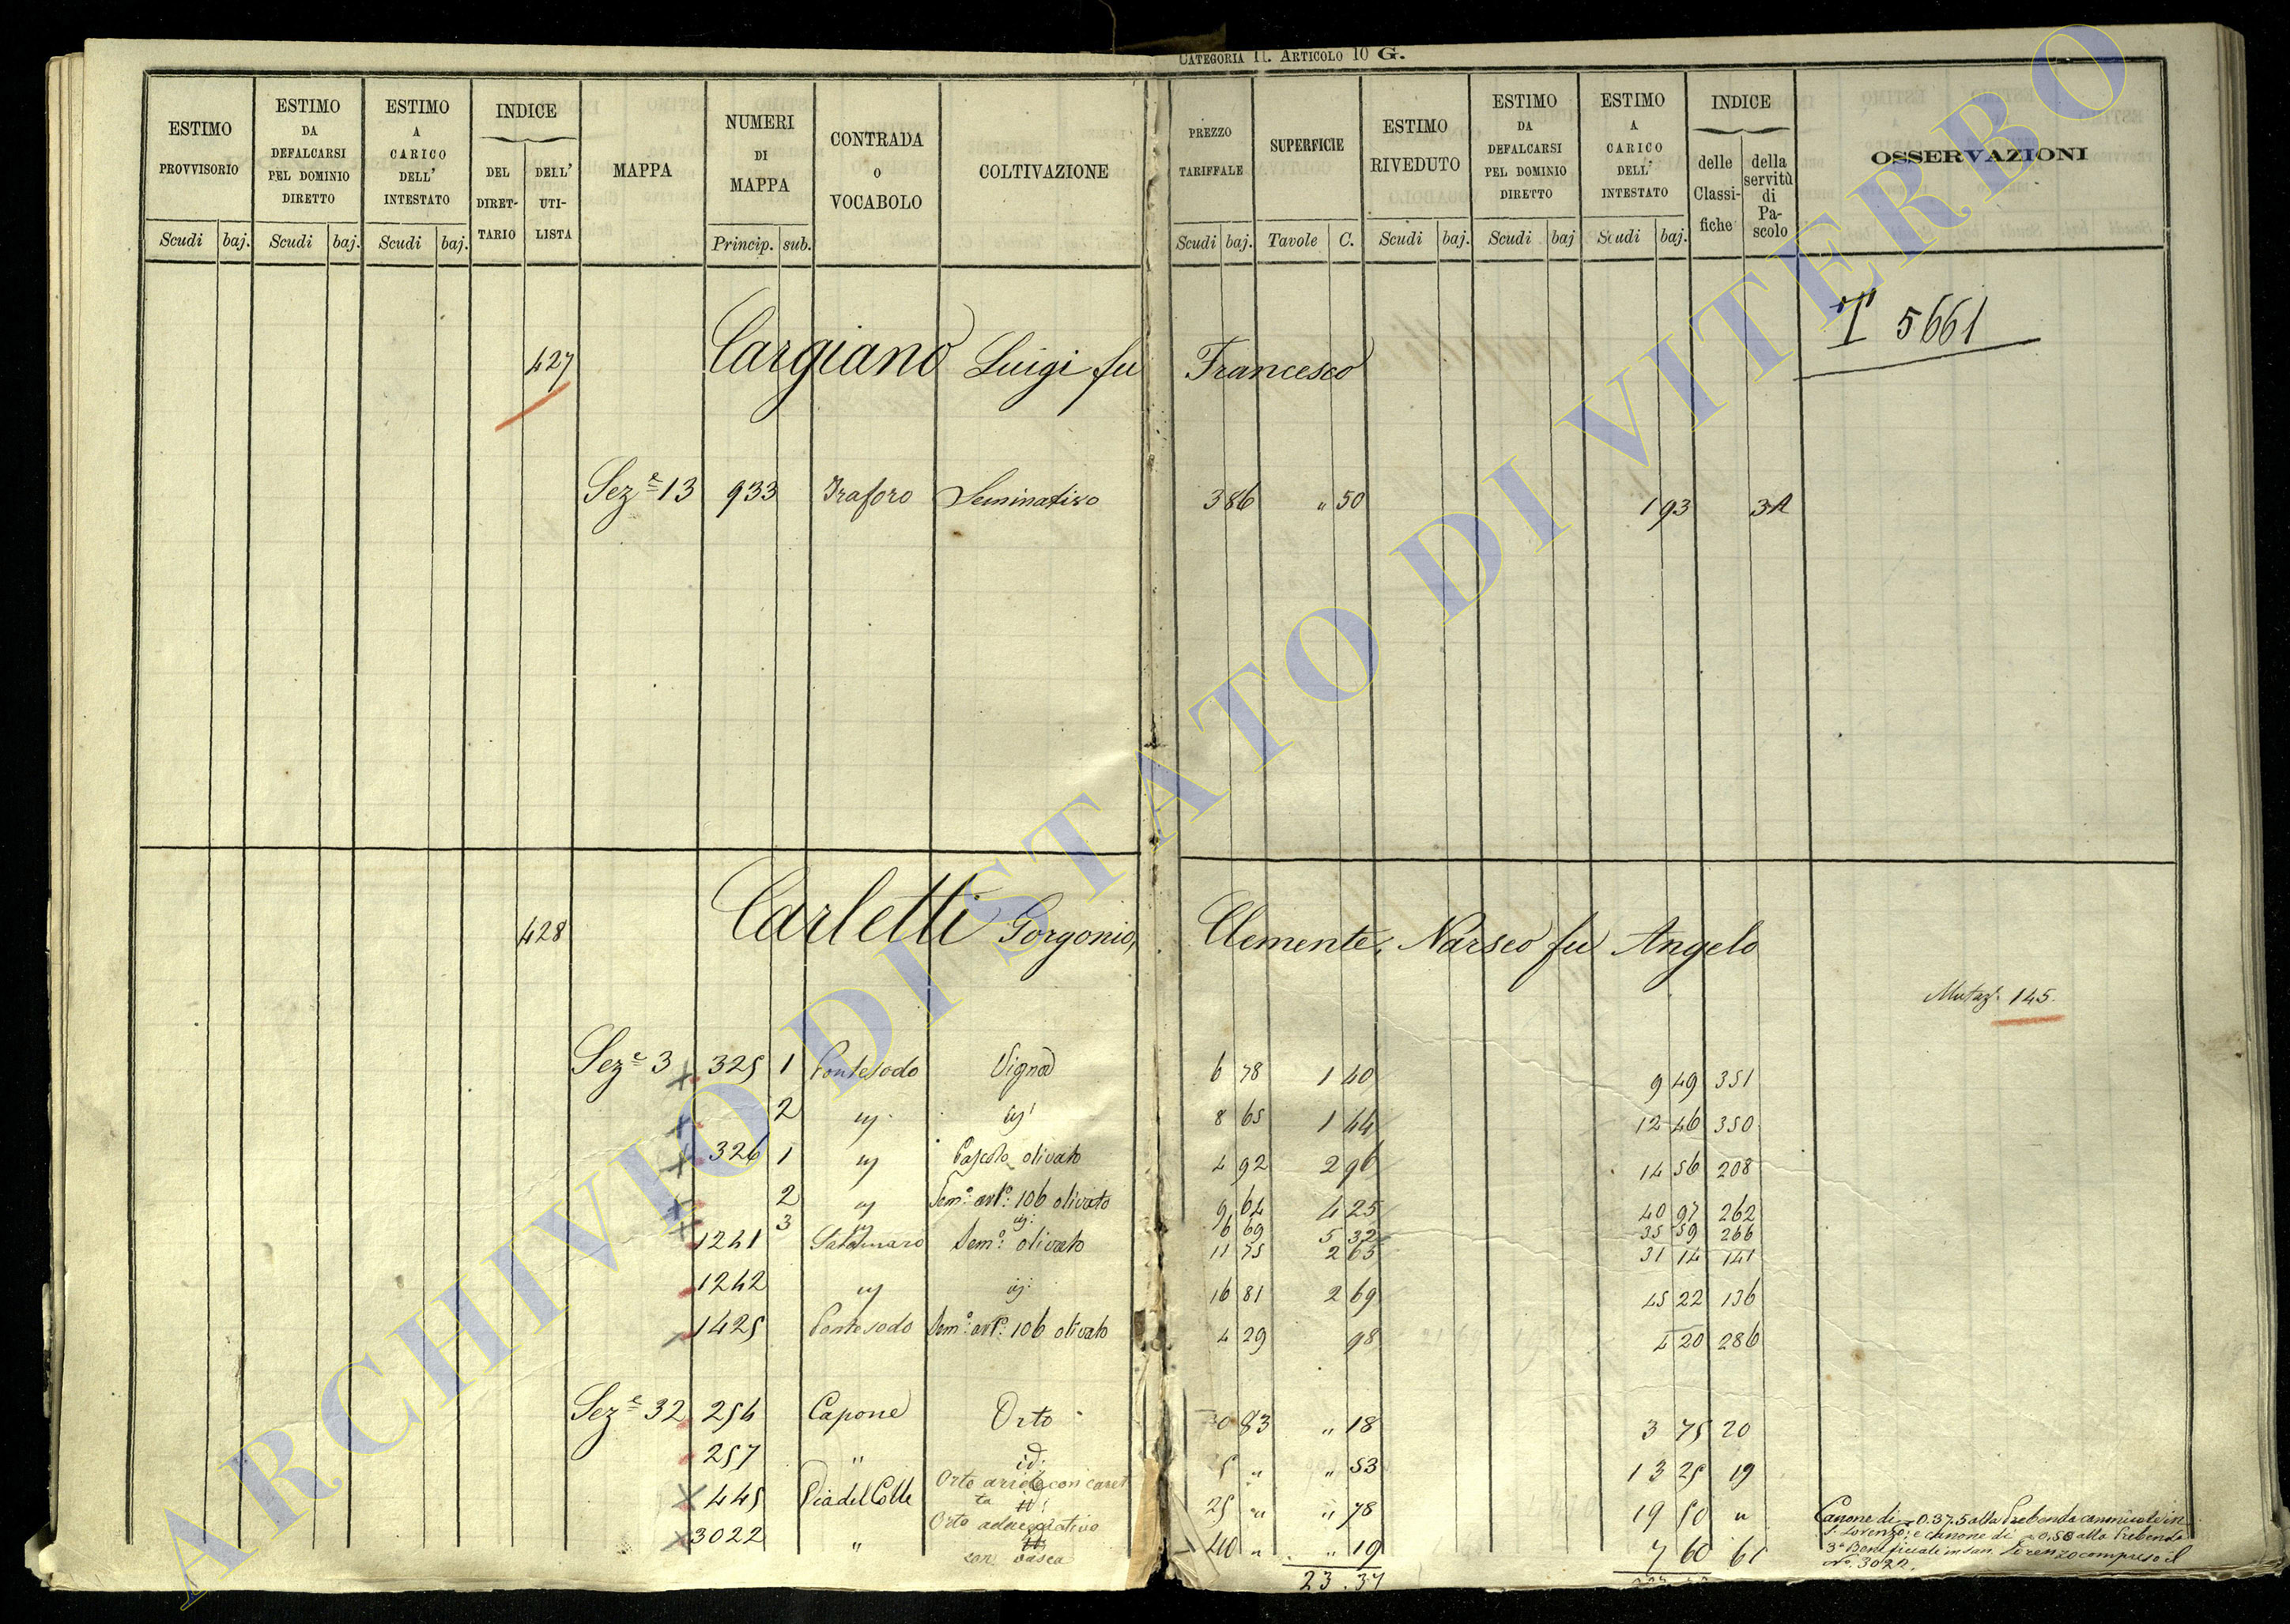 CATEGORIA II. ARTICOLO 10 G.
ESTIMO PROVVISORIO
ESTIMO DA DEFALCARSI PEL DOMINIO DIRETTO
ESTIMO A CARICO DELL' INTESTATO
INDICE
DEL DIRETTARIO
DELL' UTILISTA
MAPPA
NUMERI DI MAPPA
CONTRADA O VOCABOLO
COLTIVAZIONE
PREZZO TARIFFALE
SUPERFICIE
ESTIMO RIVEDUTO
ESTIMO DA DEFALCARSI PEL DOMINIO DIRETTO
ESTIMO A CARICO DELL' INTESTATO
INDICE
delle Classifiche
della servitù di Pascolo
OSSERVAZIONI
Scudi baj. Scudi baj. Scudi baj. Princip. sub. Scudi baj. Tavole C. Scudi baj. Scudi baj Scudi baj.
T 5661
427 Cargiano Luigi fu Francesco
Sez.e 13 933 Traforo Seminativo 3 86 " 50 1 93 3A
428 Carletti Gorgonio, Clemente, Narseo fu Angelo
Mutaz. 145.
Sez.e 3 325 1 Pontesodo Vigna 6 78 1 40 9 49 351
2 id id 8 65 1 44 12 46 350
326 1 id Pascolo olivato 4 92 2 96 14 56 208
2 id Sem.o art.o 106 olivato 9 64 4 25 40 97 262
3 id id: 6 69 5 32 35 59 266
1241 Sem.o olivato 11 75 2 65 31 14 141
1242 id id: 16 81 2 69 45 22 136
1425 Pontesodo Sem.o art.o 106 olivato 4 29 98 4 20 286
Sez.e 32 256 Capone Orto 83 " 18 3 75 20
257 " id. " " 53 13 25 19
445 Via del Colle Orto arido con caret 25 " " 78 19 50 "
ta
3022 " Orto adacquativo 40 " " 19 7 60 61
con vasca
23.37
Canone di 0.375 alla Prebenda canonicale in
S. Lorenzo; e canone di 0,50 alla Prebenda
3a Beneficiale in San Lorenzo compreso il
No. 3022.
ARCHIVIO DI STATO DI VITERBO